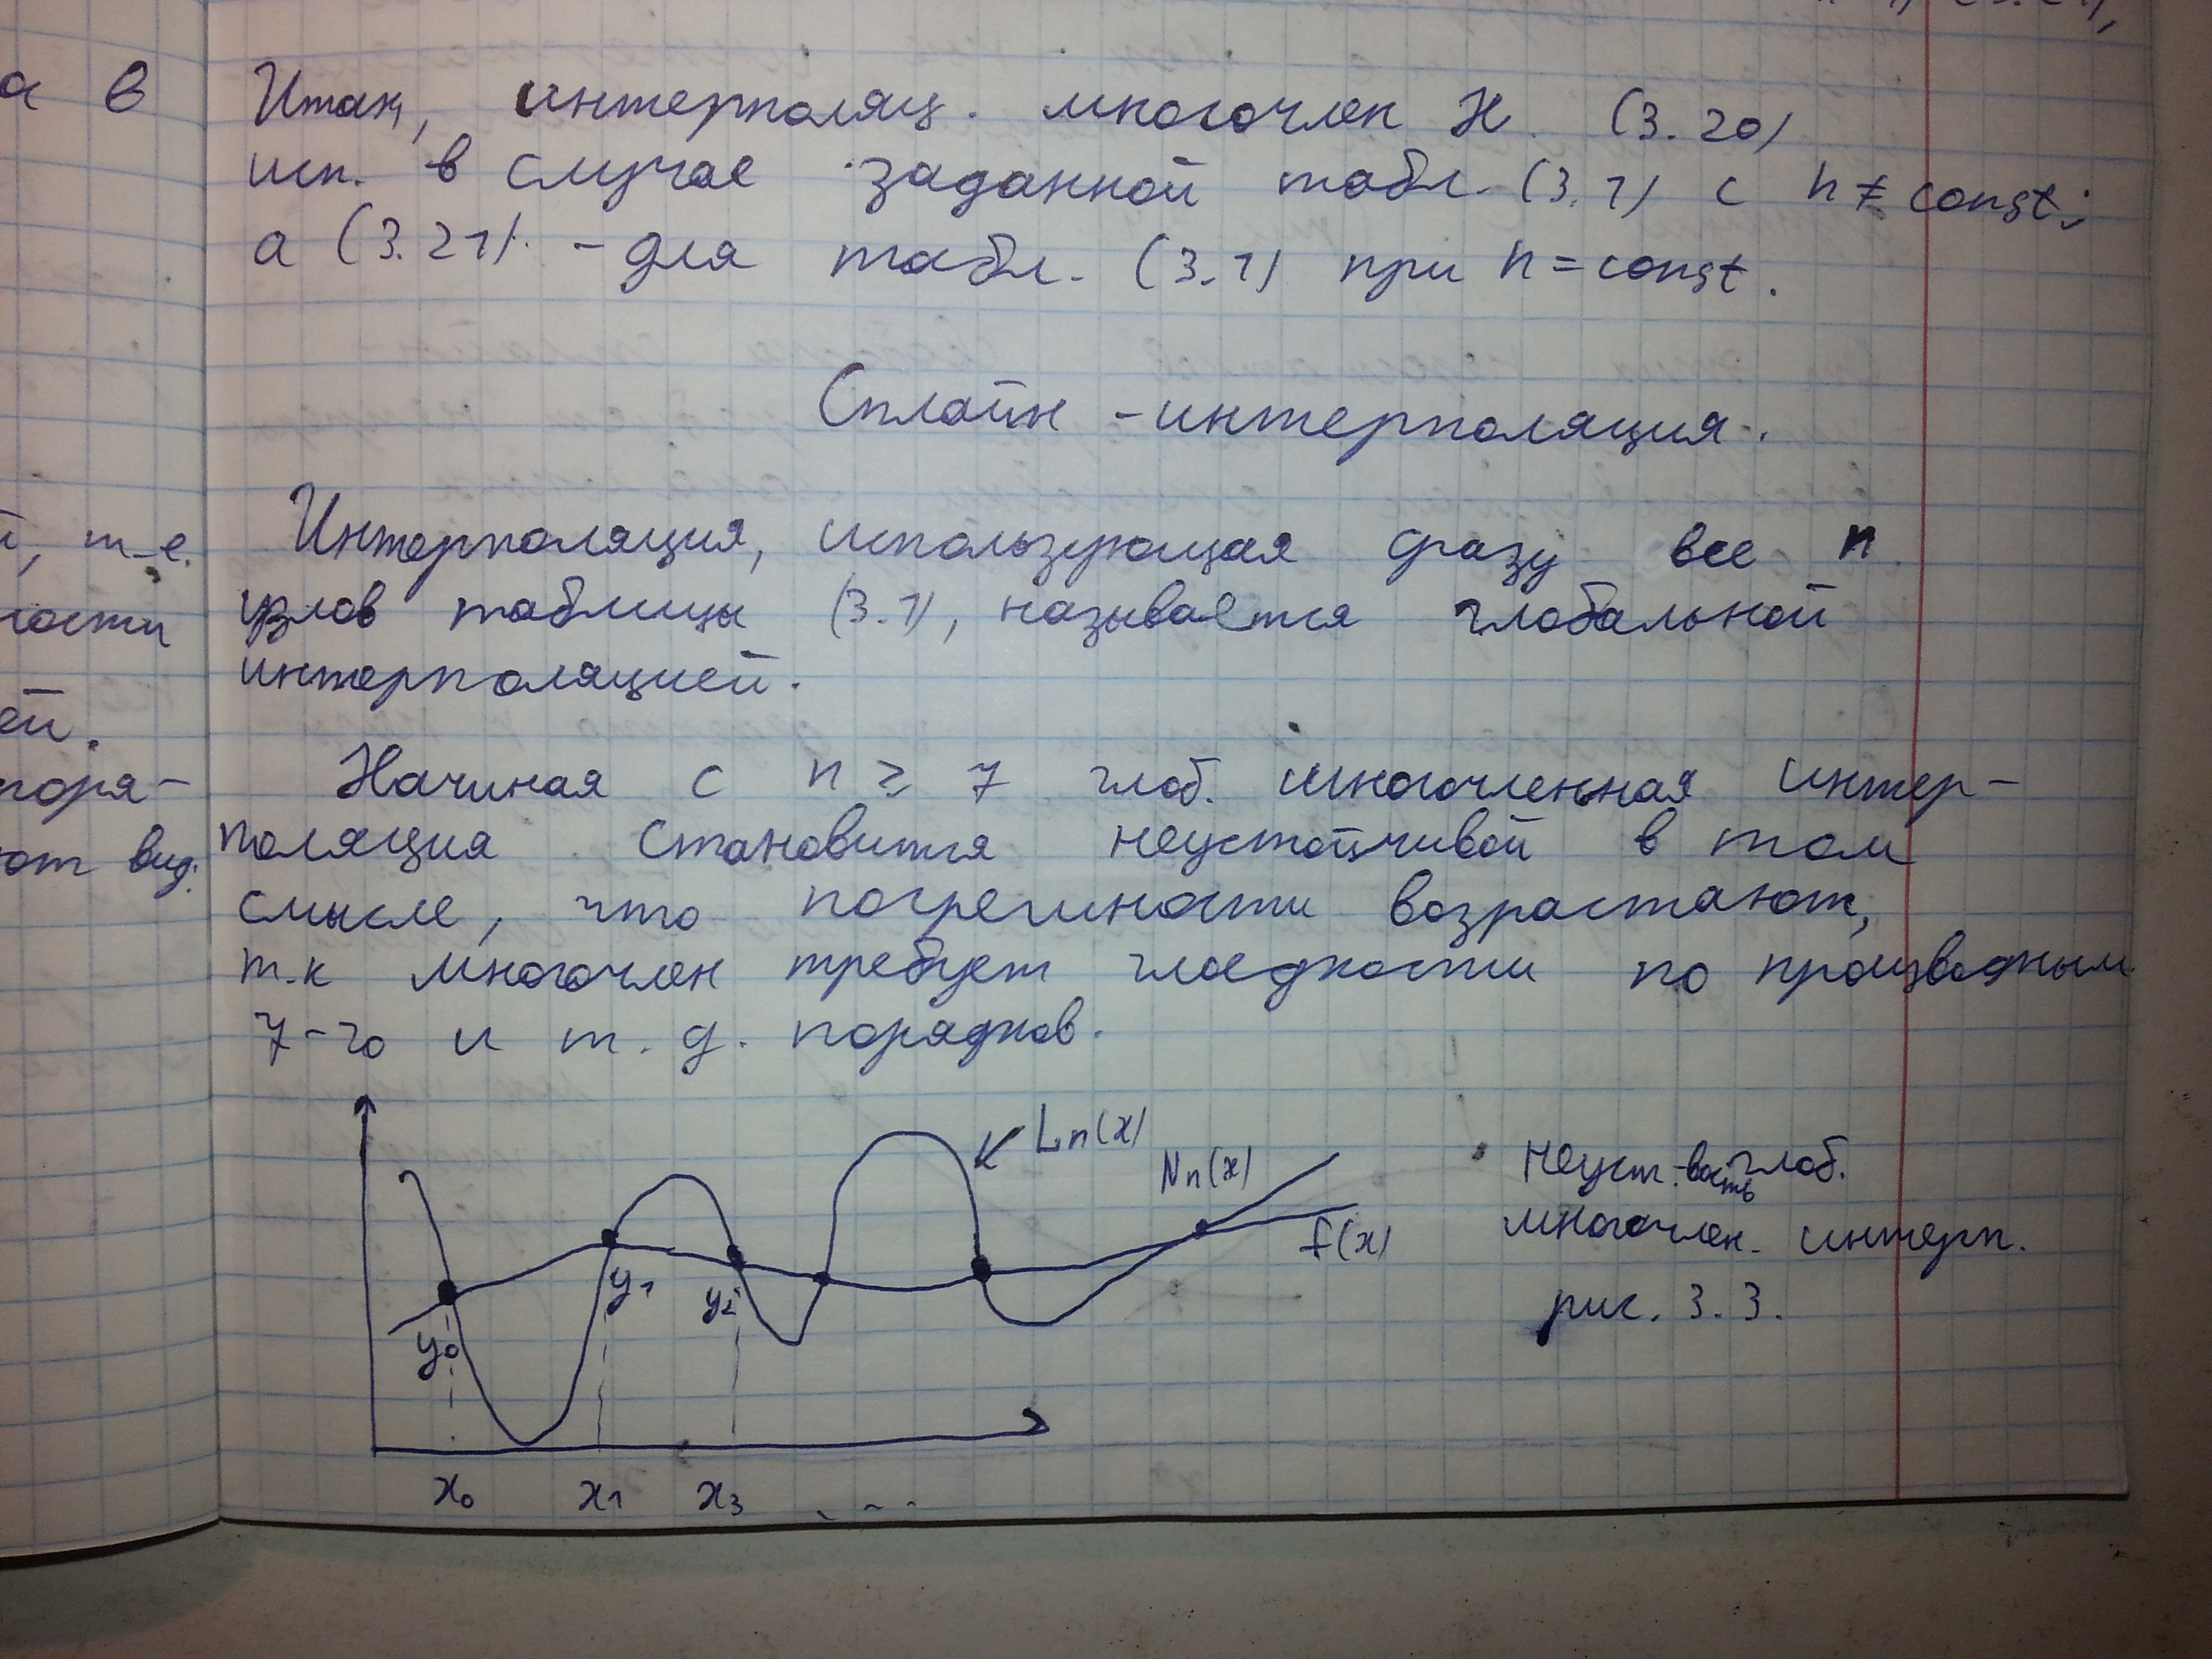 а в
Итак, интерполяц. многочлен Н. (3.20)
исп. в случае заданной табл. (3.1) с h ≠ const;
а (3.21) - для табл. (3.1) при h = const.
Сплайн - интерполяция.
Интерполяция, использующая сразу все n
й, т.е.
узлов таблицы (3.1), называется глобальной
ности
интерполяцией.
ей.
Начиная с n ≥ 7 глоб. многочленная интер-
поря-
поляция становится неустойчивой в том
ют вид:
смысле, что погрешности возрастают,
т.к многочлен требует гладкости по производным
7-го и т.д. порядков.
Ln(x)
Nn(x)
f(x)
Неуст-вость глоб.
многочлен. интерп.
рис. 3.3.
y0
y1
y2
x0 x1 x3 . ---